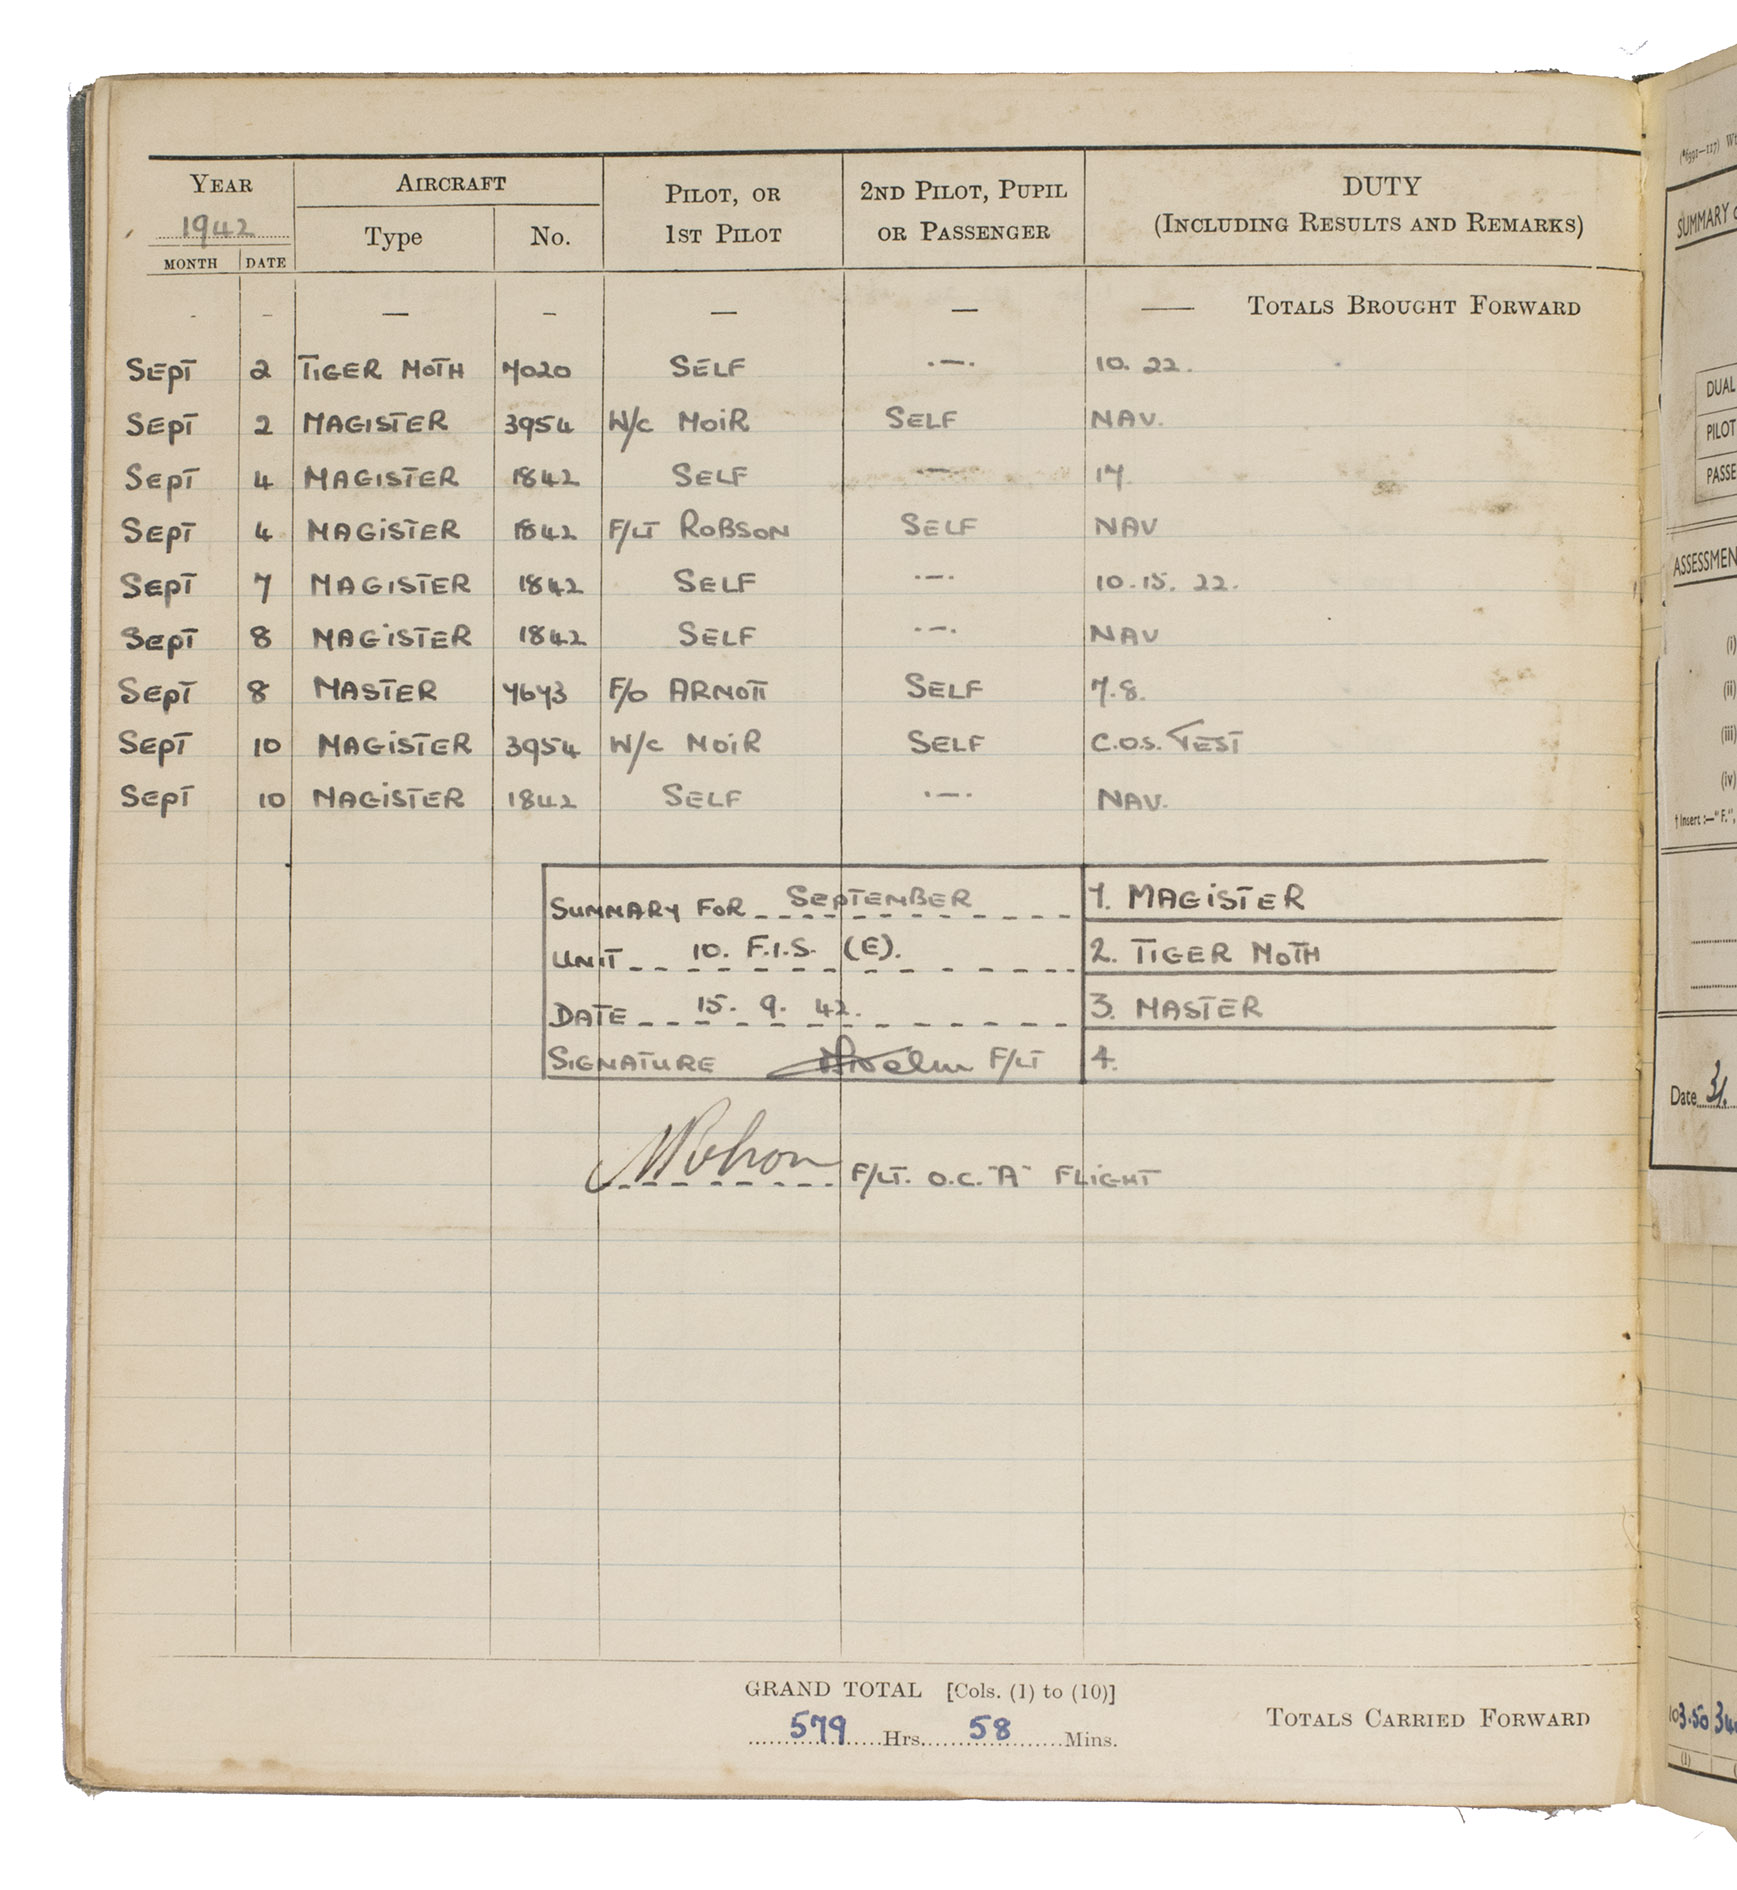 YEAR AIRCRAFT PILOT, OR 2ND PILOT, PUPIL DUTY
1942 Type No. 1ST PILOT OR PASSENGER (INCLUDING RESULTS AND REMARKS)
MONTH DATE
- - — - — — —— TOTALS BROUGHT FORWARD
SEPT 2 TIGER MOTH 7020 SELF .—. 10. 22.
SEPT 2 MAGISTER 3954 W/C MOIR SELF NAV.
SEPT 4 MAGISTER 1842 SELF .—. 17
SEPT 4 MAGISTER 1842 F/LT ROBSON SELF NAV
SEPT 7 MAGISTER 1842 SELF .—. 10.15. 22.
SEPT 8 MAGISTER 1842 SELF .—. NAV
SEPT 8 MASTER 7673 F/O ARNOTT SELF 7.8.
SEPT 10 MAGISTER 3954 W/C MOIR SELF C.O.S. TEST
SEPT 10 MAGISTER 1842 SELF .—. NAV.
SUMMARY FOR SEPTEMBER 1. MAGISTER
UNIT 10. F.I.S. (E). 2. TIGER MOTH
DATE 15. 9. 42. 3. MASTER
SIGNATURE F/LT 4.
F/LT. O.C. "A" FLIGHT
GRAND TOTAL [Cols. (1) to (10)]
579 Hrs. 58 Mins.
TOTALS CARRIED FORWARD
SUMMARY
DUAL
PILOT
PASSE
ASSESSMEN
(i)
(ii)
(iii)
(iv)
† Insert :—"F.",
Date 31.
103.50
(1)